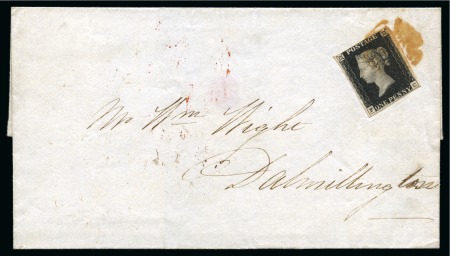 POSTAGE
ONE PENNY
Mr Wm Wight
Dalmellington